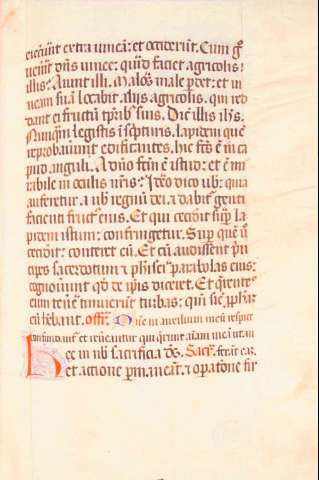 eiecerunt extra vineā: et occiderūt. Cum gͦ
venerit dn̄s vinee: quid faciet agricolis:
illis: Aiunt illi. Malos male perdet: et vi
neam suā locabit aliis agricolis. qui red
dant ei fructū tp̄ribꝫ suis. Dic̄ illis ihs̄.
Nunqͣm legistis ī scpturis. lapidem quē
reprobauerunt edificantes. hic fc̄s ē in ca
put anguli. A dño fc̄m ē istud: et ē mi
rabile in oculis nr̄is: Ideo dico vb: quia
auferetur. a vb regnū dei. ⁊ dabit genti
facienti fructꝰ eius. Et qui ceciderit sup la
pidem istum: confringetur. Sup quē ꝟo
ceciderit: conteret eū. Et cū audissent prī
cipes sacerdotum ⁊ pharisei parabolas eius:
cognouerunt qd̓ de ip̄is diceret. Et querentes
eum tenē timuerunt turbas: qm̄ sic̄ ꝓphā
eū hēbant. offm̄. Dn̄e in auxilium meū respice
confundant et reuereantur qui querunt aīam meā ut au
Hec in nb̄ sacrificia ds̄. Sacr̄.
et actione pm̄aneāt. ⁊ operatōne fir